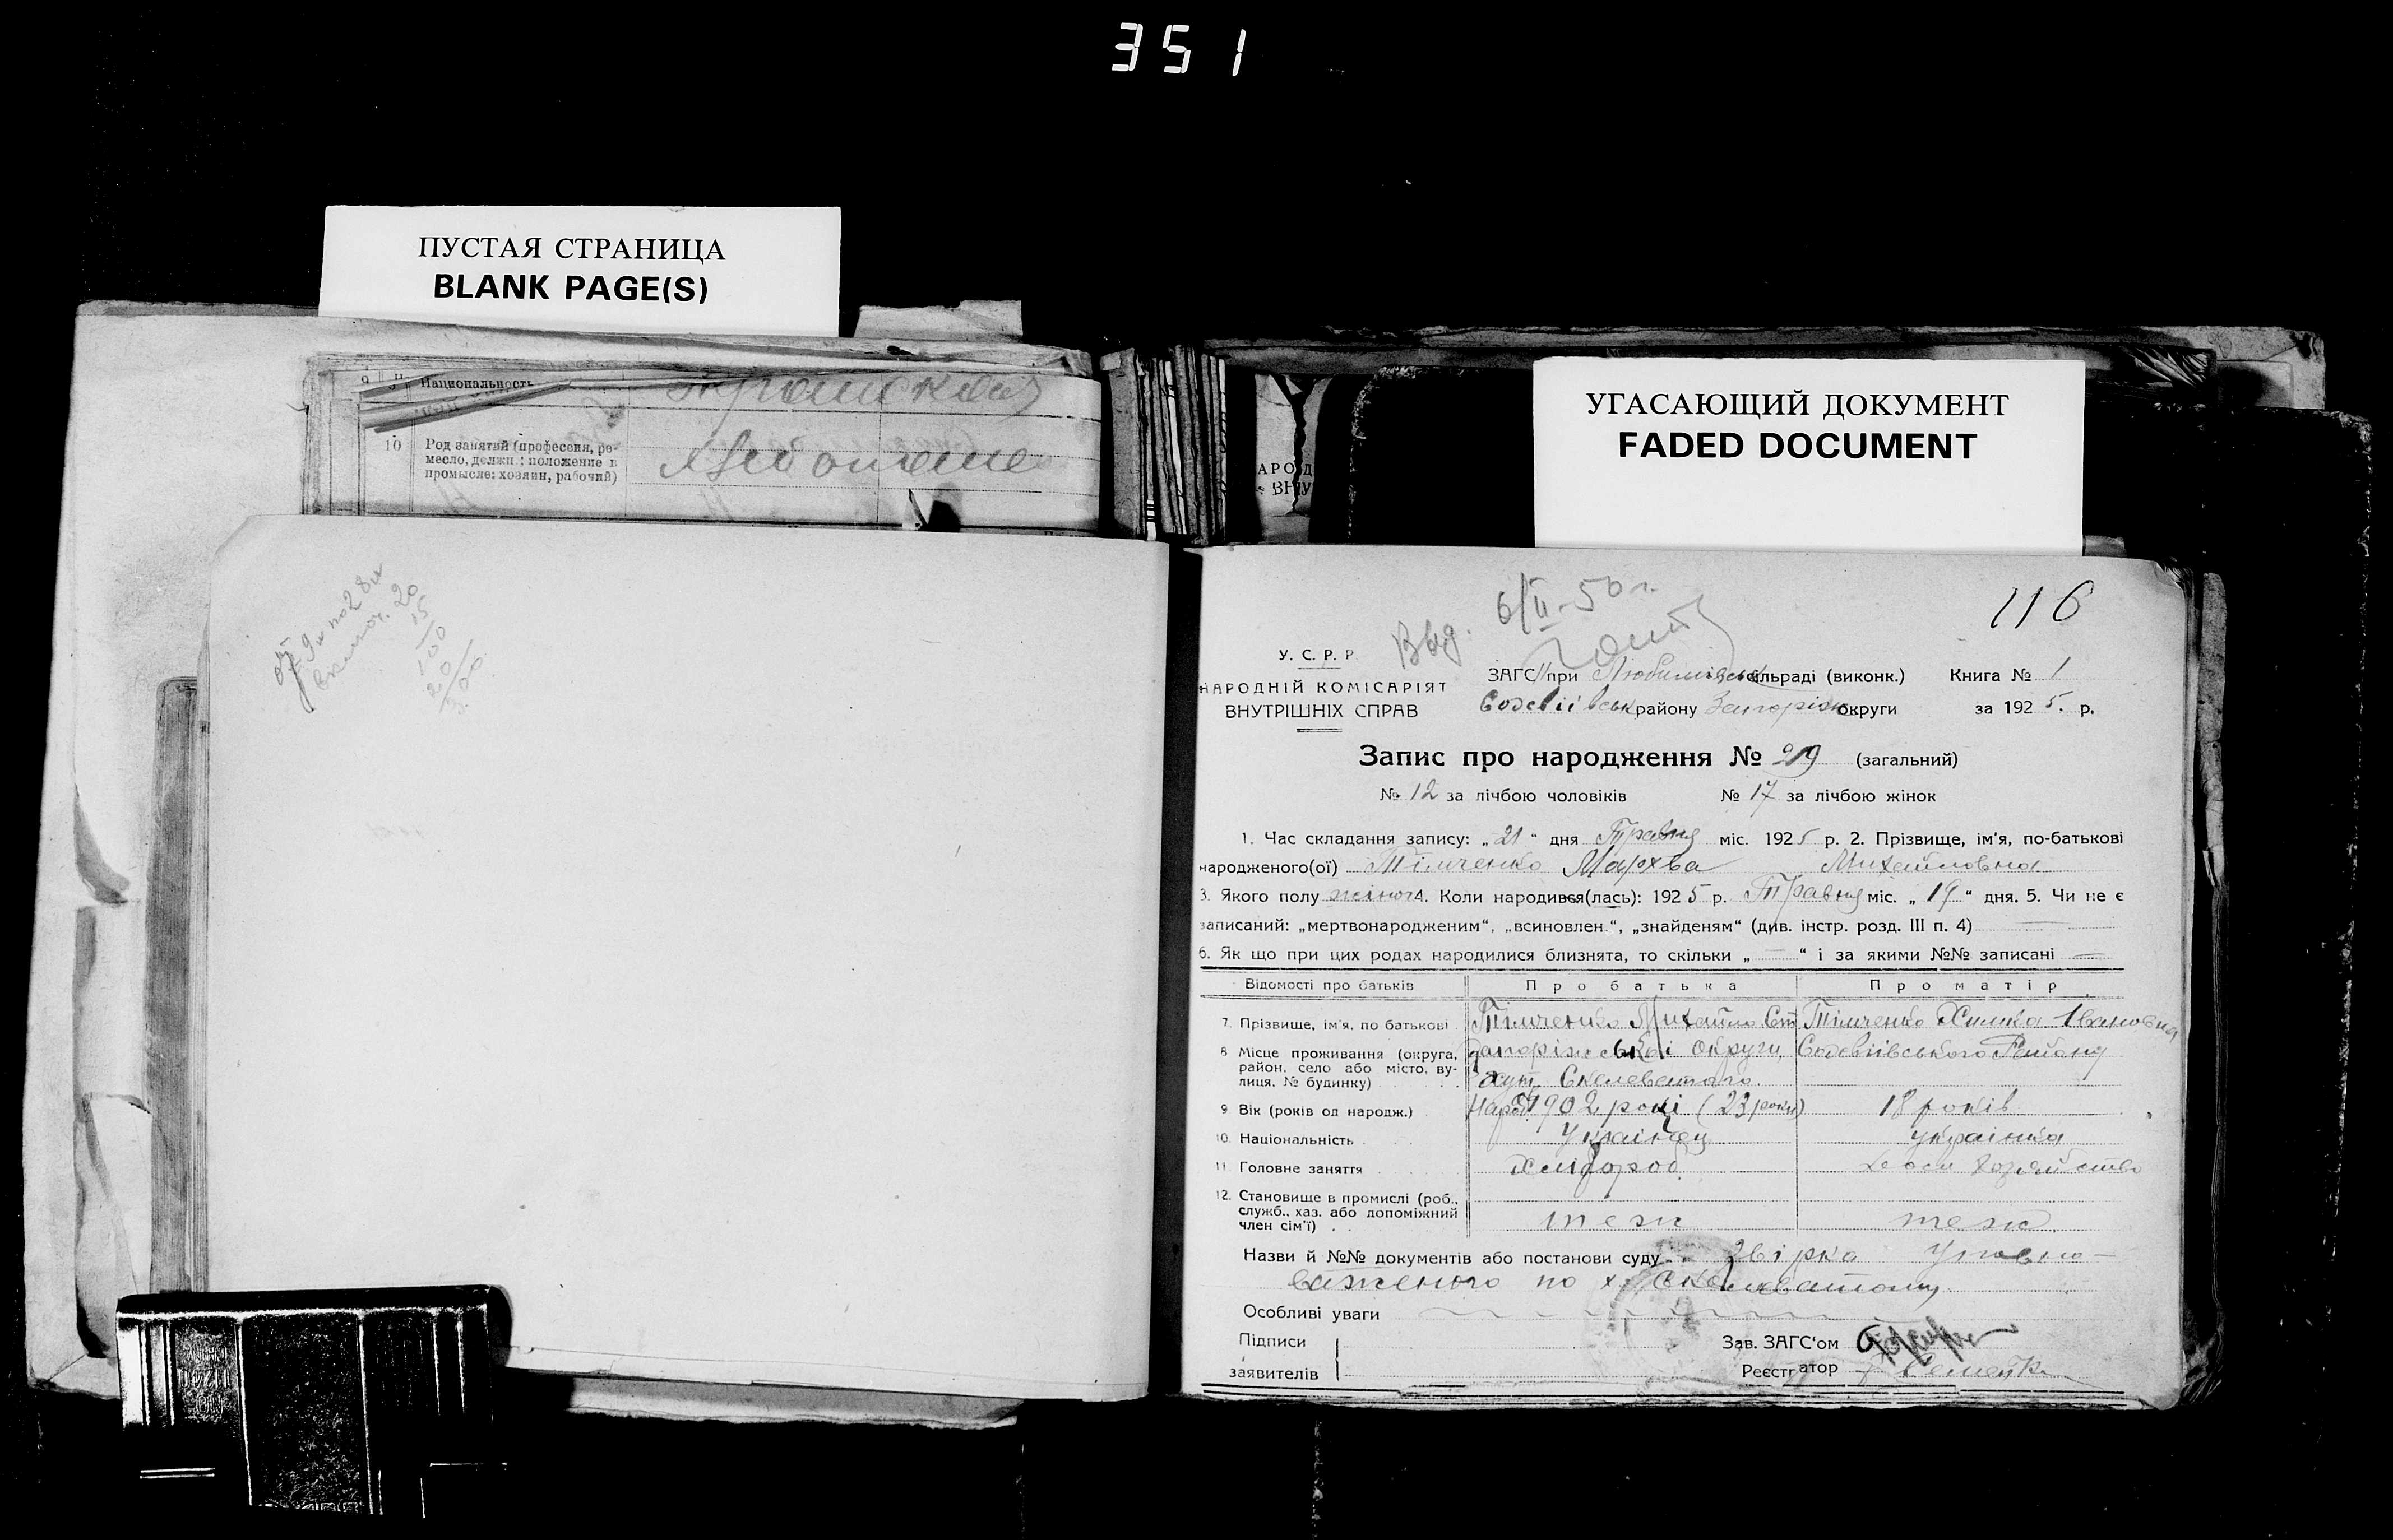 351
ПУСТАЯ СТРАНИЦА
BLANK PAGE(S)
Национальность
10 Род занятий (профессия, ре-
месло, должн.; положение в
промысле: хозяин, рабочий)
УГАСАЮЩИЙ ДОКУМЕНТ
FADED DOCUMENT
116
Выд. 6/II-50 г.
У. С. Р. Р.
НАРОДНІЙ КОМІСАРІЯТ
ВНУТРІШНІХ СПРАВ
ЗАГС при Любимівськ сільраді (виконк.) Книга № 1
району Запоріжськ округи за 1925. р.
Запис про народження № 29 (загальний)
№ 12 за лічбою чоловіків № 17 за лічбою жінок
1. Час складання запису: „21“ дня Травня міс. 1925 р. 2. Прізвище, ім'я, по-батькові
народженого(ої) Тімченко Мархва Михайловна
3. Якого полу жіноч 4. Коли народився(лась): 1925 р. Травня міс. „19“ дня. 5. Чи не є
записаний: „мертвонародженим“, „всиновлен.“, „знайденям“ (див. інстр. розд. III п. 4)
6. Як що при цих родах народилися близнята, то скільки „—“ і за якими №№ записані —
Відомості про батьків Про батька Про матір
7. Прізвище, ім'я, по батькові Тімченко Михайло Ст Тімченко Химка Івановна
8 Місце проживання (округа, Запоріжської Округи Району
район, село або місто, ву-
лиця, № будинку) хут. Скелеватого
9 Вік (років од народж.) Народ. 1902 році (23 роки) 18 років
10. Національність Українец українка
11 Головне заняття Хлібороб
12. Становище в промислі (роб.,
служб., хаз. або допоміжний
член сім'ї) теж теж
Назви й №№ документів або постанови суду Звірка Уповно-
важеного по х. Скелеватому
Особливі уваги
Підписи Зав. ЗАГС‘ом
заявителів Реєстратор